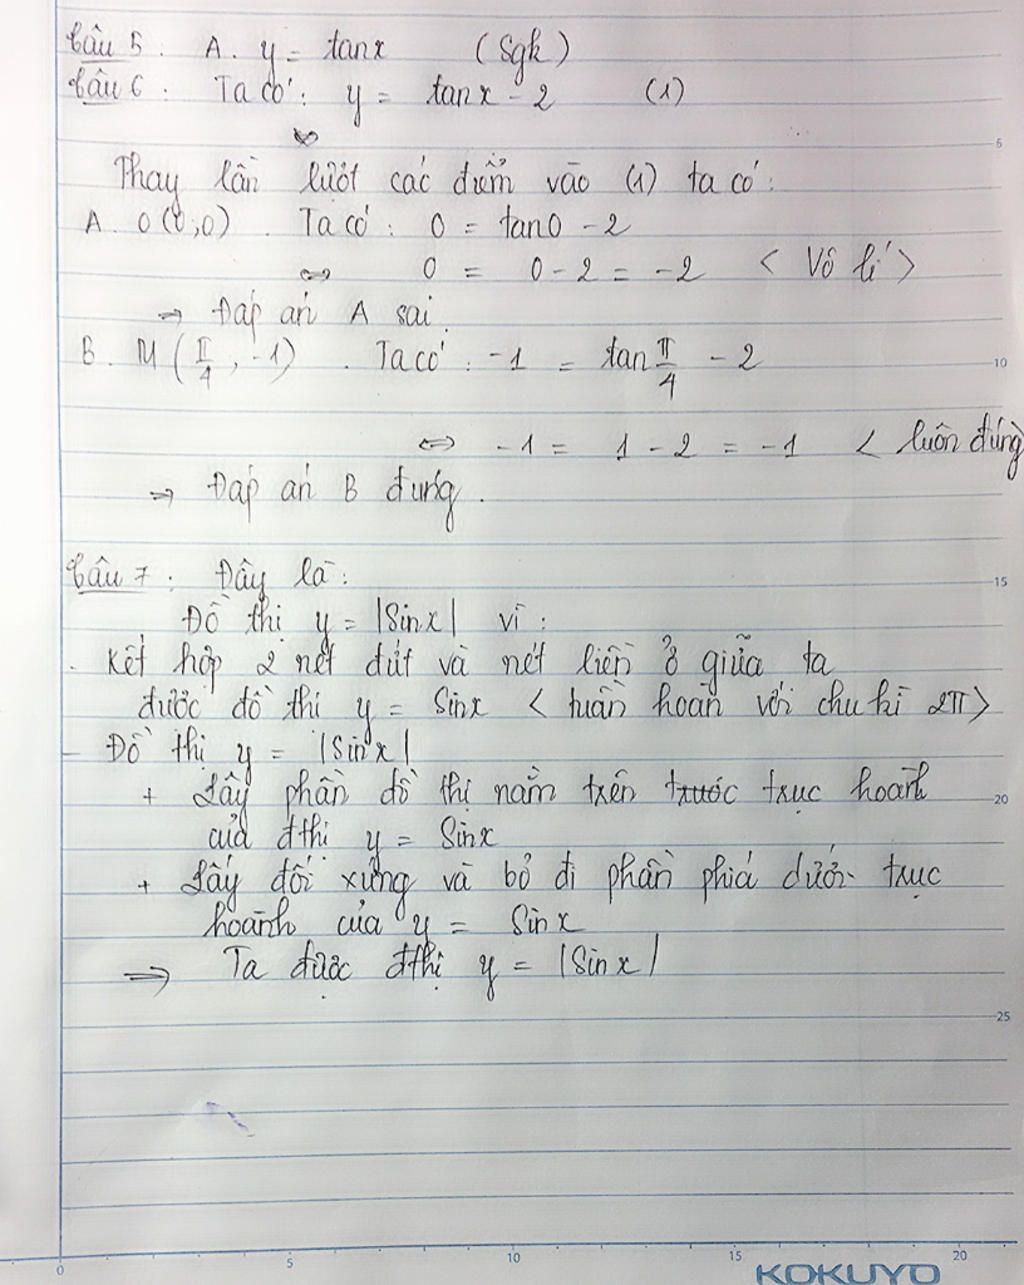 Câu 5 : A. y = tanx (Sgk)
Câu 6 : Ta có : y = tanx - 2 (1)
Thay lần lượt các điểm vào (1) ta có :
A. O(0;0) . Ta có : 0 = tan0 - 2
⇔ 0 = 0 - 2 = -2 < Vô lí >
⇒ Đáp án A sai.
B. M (π/4 , -1) . Ta có : -1 = tan π/4 - 2
⇔ -1 = 1 - 2 = -1 < luôn đúng
⇒ Đáp án B đúng.
Câu 7 : Đây là :
Đồ thị y = |Sinx| vì :
. Kết hợp 2 nét đứt và nét liền ở giữa ta
được đồ thị y = Sinx < tuần hoàn với chu kì 2π >
- Đồ thị y = |Sinx|
+ Lấy phần đồ thị nằm trên trước trục hoành
của đthi y = Sinx
+ Lấy đối xứng và bỏ đi phần phiá dưới trục
hoành của y = Sinx
⇒ Ta được đthị y = |Sinx|
5
10
15
20
25
0 5 10 15 20
KOKUYO